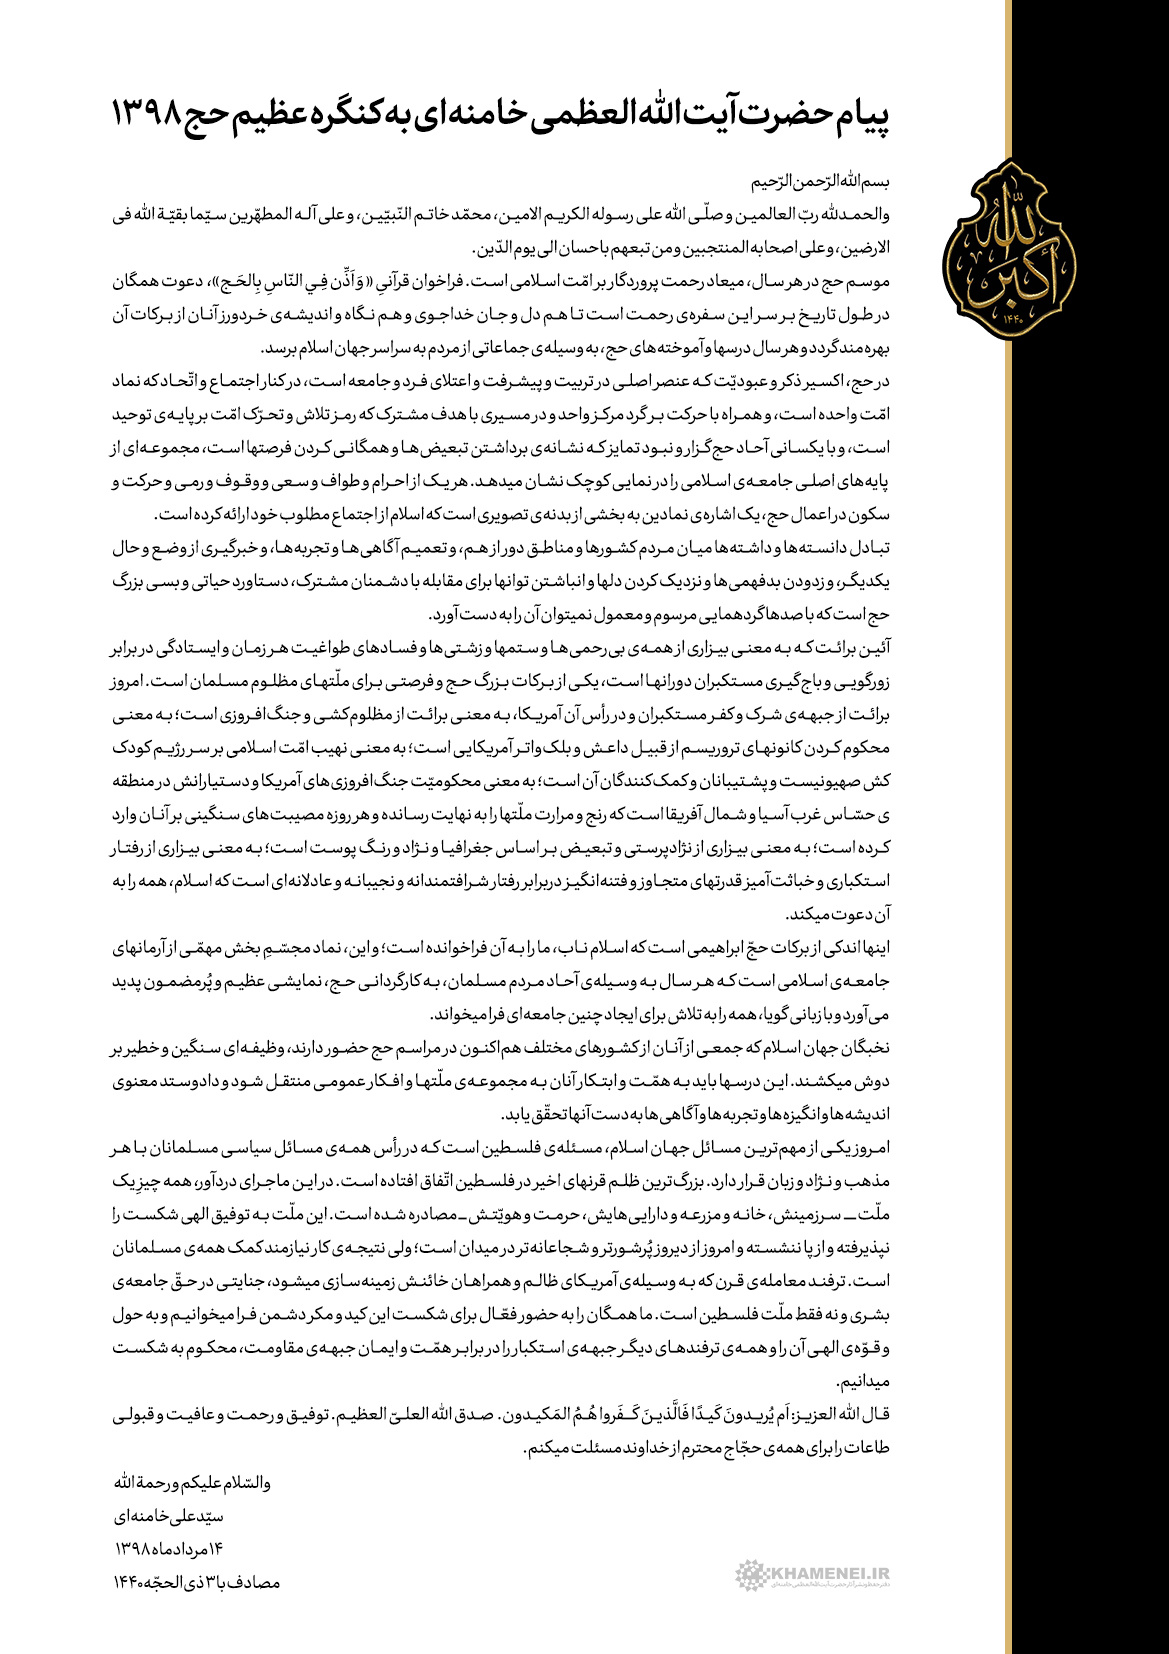 پیام حضرت آیت‌الله‌العظمی خامنه‌ای به کنگره عظیم حج ۱۳۹۸
الله
اکبر
۱۴۴۰
بسم‌الله‌الرّحمن‌الرّحیم
والحمدلله ربّ العالمین و صلّی الله علی رسوله الکریم الامین، محمّد خاتم النّبیّین، و علی آله المطهّرین سیّما بقیّة الله فی
الارضین، و علی اصحابه المنتجبین و من تبعهم باحسان الی یوم الدّین.
موسم حج در هر سال، میعاد رحمت پروردگار بر امّت اسلامی است. فراخوان قرآنیِ «وَ اَذِّن فِي النّاسِ بِالحَج»، دعوت همگان
در طول تاریخ بر سر این سفره‌ی رحمت است تا هم دل و جان خداجوی و هم نگاه و اندیشه‌ی خردورز آنان از برکات آن
بهره‌مند گردد و هر سال درسها و آموخته‌های حج، به وسیله‌ی جماعاتی از مردم به سراسر جهان اسلام برسد.
در حج، اکسیر ذکر و عبودیّت که عنصر اصلی در تربیت و پیشرفت و اعتلای فرد و جامعه است، در کنار اجتماع و اتّحاد که نماد
امّت واحده است، و همراه با حرکت بر گرد مرکز واحد و در مسیری با هدف مشترک که رمز تلاش و تحرّک امّت بر پایه‌ی توحید
است، و با یکسانی آحاد حج‌گزار و نبود تمایز که نشانه‌ی برداشتن تبعیض‌ها و همگانی کردن فرصتها است، مجموعه‌ای از
پایه‌های اصلی جامعه‌ی اسلامی را در نمایی کوچک نشان میدهد. هر یک از احرام و طواف و سعی و وقوف و رمی و حرکت و
سکون در اعمال حج، یک اشاره‌ی نمادین به بخشی از بدنه‌ی تصویری است که اسلام از اجتماع مطلوب خود ارائه کرده است.
تبادل دانسته‌ها و داشته‌ها میان مردم کشورها و مناطق دور از هم، و تعمیم آگاهی‌ها و تجربه‌ها، و خبرگیری از وضع و حال
یکدیگر، و زدودن بدفهمی‌ها و نزدیک کردن دلها و انباشتن توانها برای مقابله با دشمنان مشترک، دستاورد حیاتی و بسی بزرگ
حج است که با صدها گردهمایی مرسوم و معمول نمیتوان آن را به دست آورد.
آئین برائت که به معنی بیزاری از همه‌ی بی‌رحمی‌ها و ستمها و زشتی‌ها و فسادهای طواغیت هر زمان و ایستادگی در برابر
زورگویی و باج‌گیری مستکبران دورانها است، یکی از برکات بزرگ حج و فرصتی برای ملّتهای مظلوم مسلمان است. امروز
برائت از جبهه‌ی شرک و کفر مستکبران و در رأس آن آمریکا، به معنی برائت از مظلوم‌کشی و جنگ‌افروزی است؛ به معنی
محکوم کردن کانونهای تروریسم از قبیل داعش و بلک‌واتر آمریکایی است؛ به معنی نهیب امّت اسلامی بر سر رژیم کودک
کش صهیونیست و پشتیبانان و کمک‌کنندگان آن است؛ به معنی محکومیّت جنگ‌افروزی‌های آمریکا و دستیارانش در منطقه
ی حسّاس غرب آسیا و شمال آفریقا است که رنج و مرارت ملّتها را به نهایت رسانده و هر روزه مصیبت‌های سنگینی بر آنان وارد
کرده است؛ به معنی بیزاری از نژادپرستی و تبعیض بر اساس جغرافیا و نژاد و رنگ پوست است؛ به معنی بیزاری از رفتار
استکباری و خباثت‌آمیز قدرتهای متجاوز و فتنه‌انگیز دربرابر رفتار شرافتمندانه و نجیبانه و عادلانه‌ای است که اسلام، همه را به
آن دعوت میکند.
اینها اندکی از برکات حجّ ابراهیمی است که اسلام ناب، ما را به آن فراخوانده است؛ و این، نماد مجسّمِ بخش مهمّی از آرمانهای
جامعه‌ی اسلامی است که هر سال به وسیله‌ی آحاد مردم مسلمان، به کارگردانی حج، نمایشی عظیم و پُرمضمون پدید
می‌آورد و با زبانی گویا، همه را به تلاش برای ایجاد چنین جامعه‌ای فرا میخواند.
نخبگان جهان اسلام که جمعی از آنان از کشورهای مختلف هم‌اکنون در مراسم حج حضور دارند، وظیفه‌ای سنگین و خطیر بر
دوش میکشند. این درسها باید به همّت و ابتکار آنان به مجموعه‌ی ملّتها و افکار عمومی منتقل شود و دادوستد معنوی
اندیشه‌ها و انگیزه‌ها و تجربه‌ها و آگاهی‌ها به دست آنها تحقّق یابد.
امروز یکی از مهم‌ترین مسائل جهان اسلام، مسئله‌ی فلسطین است که در رأس همه‌ی مسائل سیاسی مسلمانان با هر
مذهب و نژاد و زبان قرار دارد. بزرگ‌ترین ظلم قرنهای اخیر در فلسطین اتّفاق افتاده است. در این ماجرای دردآور، همه چیزِ یک
ملّت ــ سرزمینش، خانه و مزرعه و دارایی‌هایش، حرمت و هویّتش ــ مصادره شده است. این ملّت به توفیق الهی شکست را
نپذیرفته و از پا ننشسته و امروز از دیروز پُرشورتر و شجاعانه‌تر در میدان است؛ ولی نتیجه‌ی کار نیازمند کمک همه‌ی مسلمانان
است. ترفند معامله‌ی قرن که به وسیله‌ی آمریکای ظالم و همراهان خائنش زمینه‌سازی میشود، جنایتی در حقّ جامعه‌ی
بشری و نه فقط ملّت فلسطین است. ما همگان را به حضور فعّال برای شکست این کید و مکر دشمن فرا میخوانیم و به حول
و قوّه‌ی الهی آن را و همه‌ی ترفندهای دیگر جبهه‌ی استکبار را در برابر همّت و ایمان جبهه‌ی مقاومت، محکوم به شکست
میدانیم.
قال الله العزیز: اَم یُریدونَ کَیدًا فَالَّذینَ کَفَروا هُمُ المَکیدون. صدق الله العلیّ العظیم. توفیق و رحمت و عافیت و قبولی
طاعات را برای همه‌ی حجّاج محترم از خداوند مسئلت میکنم.
والسّلام علیکم و رحمة الله
سیّدعلی خامنه‌ای
۱۴ مرداد ماه ۱۳۹۸
مصادف با ۳ ذی‌الحجّه ۱۴۴۰
KHAMENEI.IR
دفتر حفظ و نشر آثار حضرت آیت‌الله‌العظمی خامنه‌ای